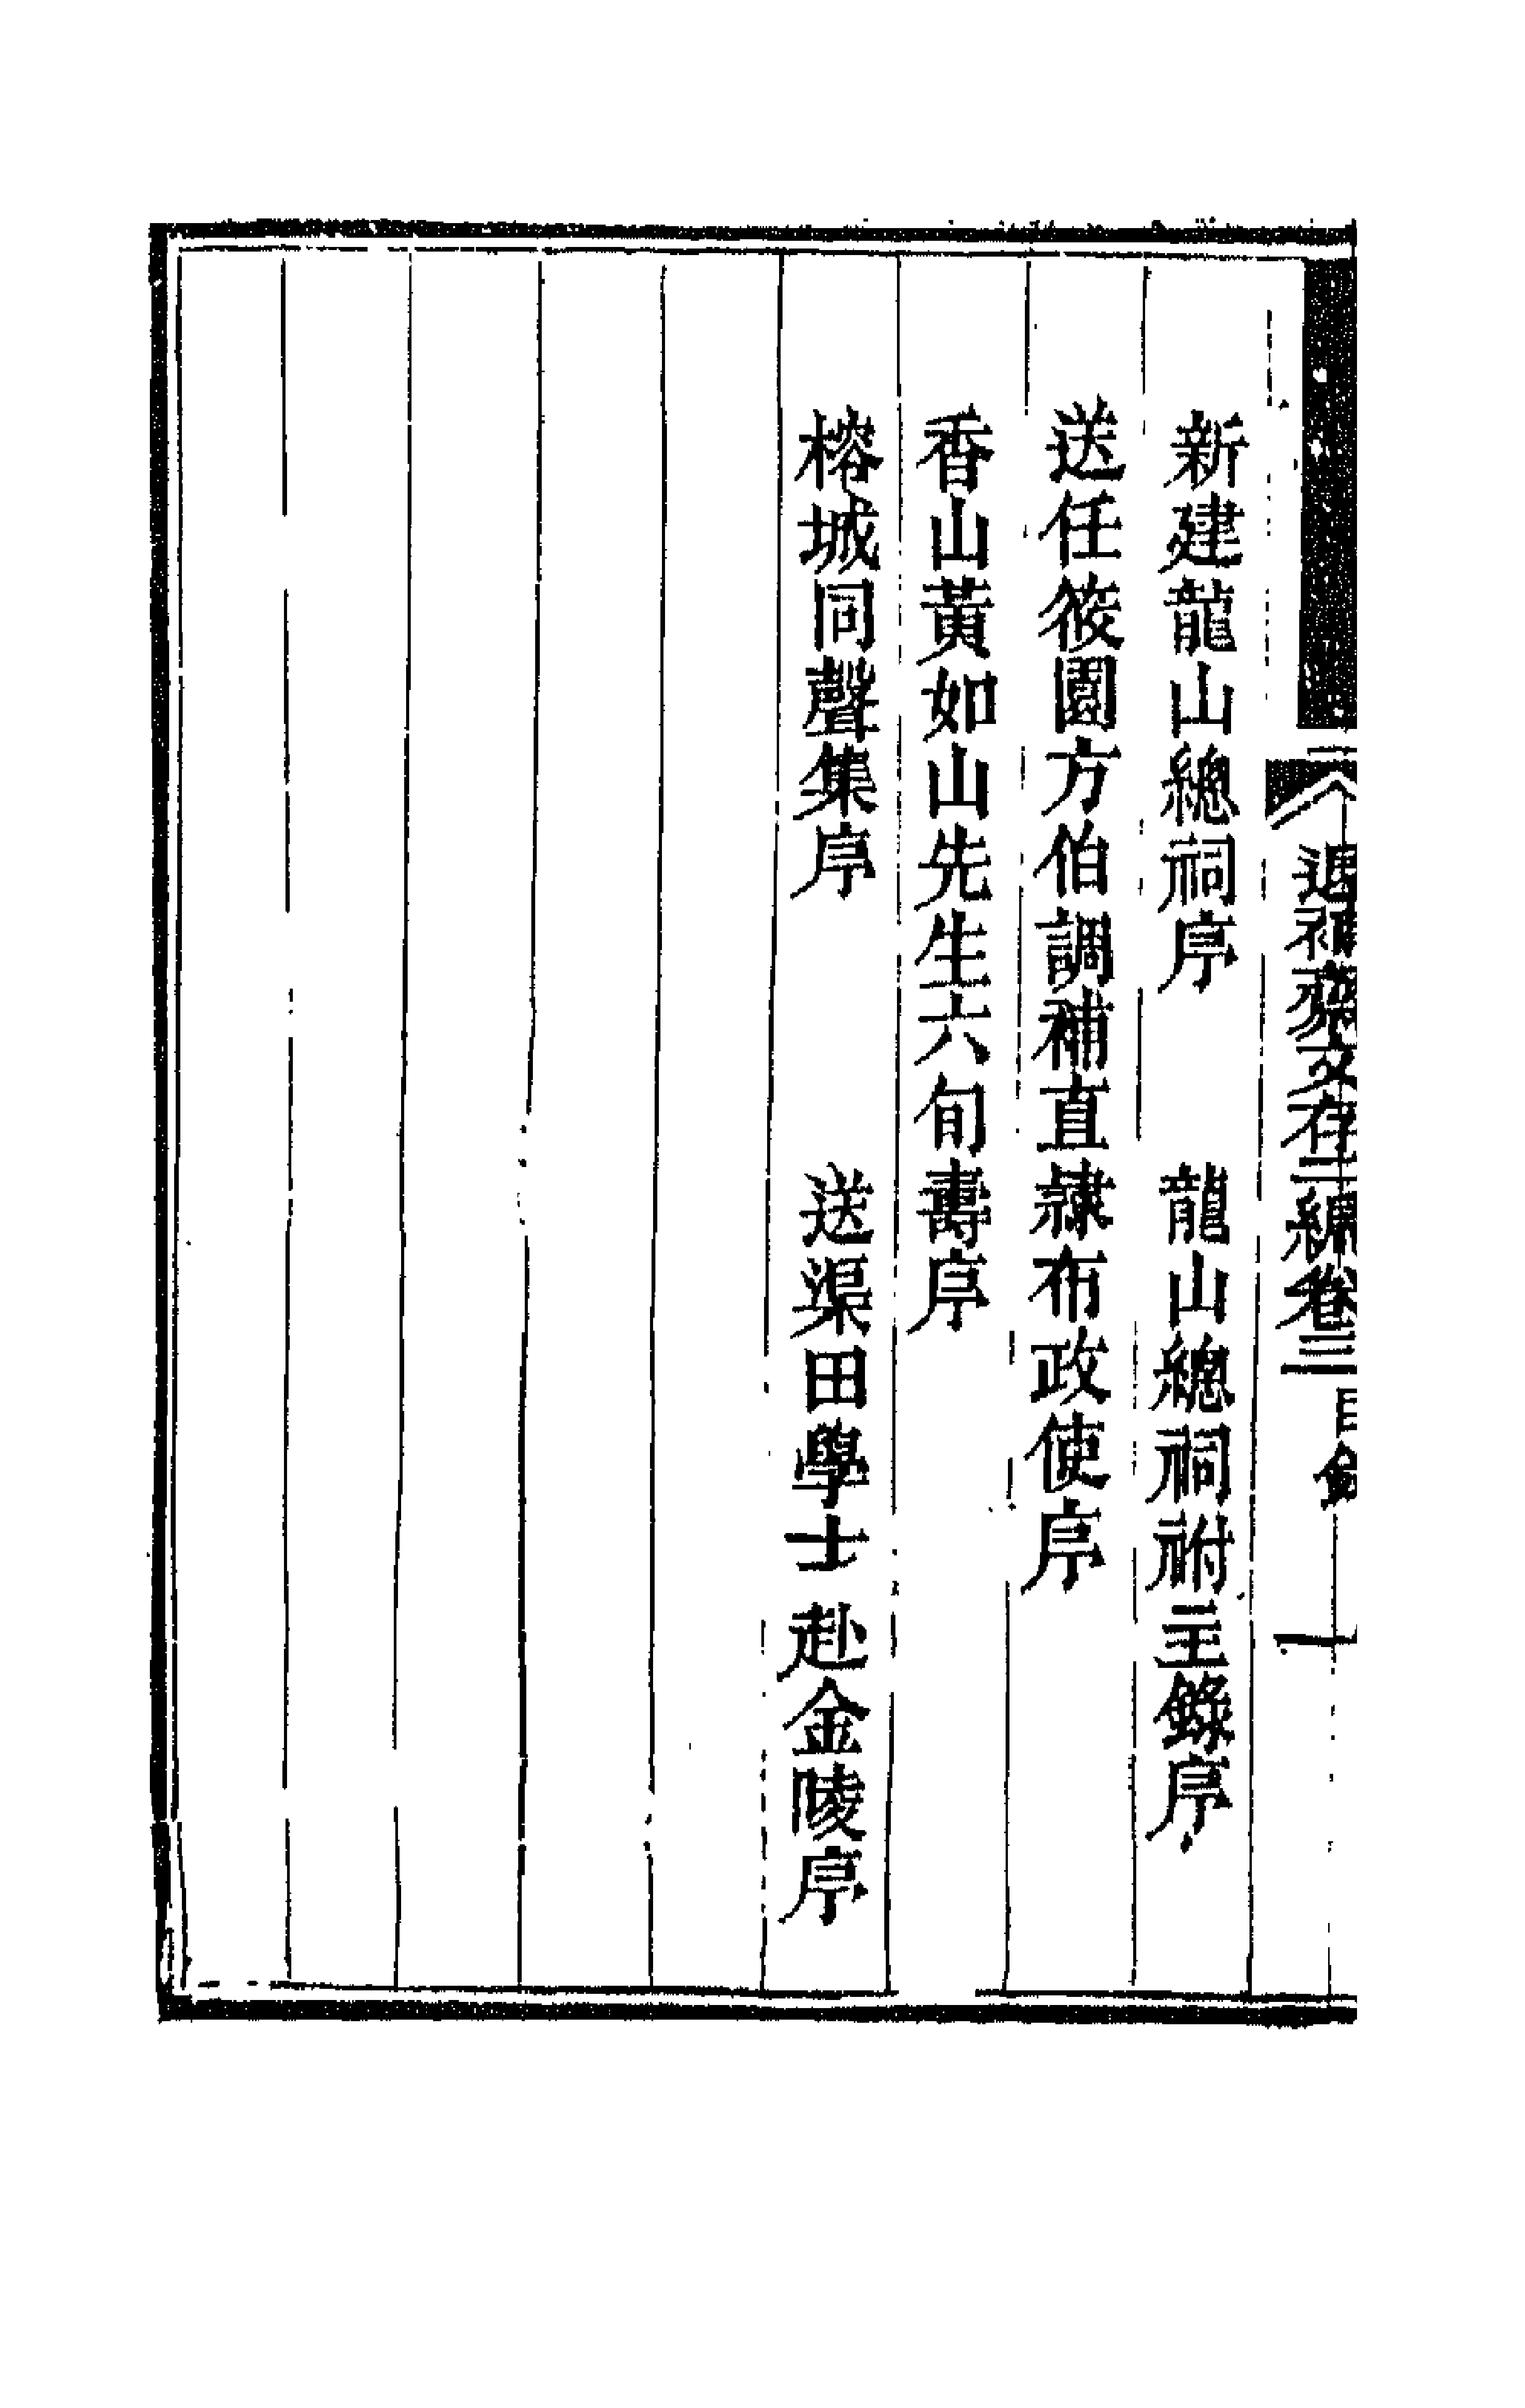 退補齋文存二編卷三 目錄 一
新建龍山總祠序 龍山總祠祔主錄序
送任筱園方伯調補直隸布政使序
香山黃如山先生六旬壽序
榕城同聲集序 送渠田學士赴金陵序